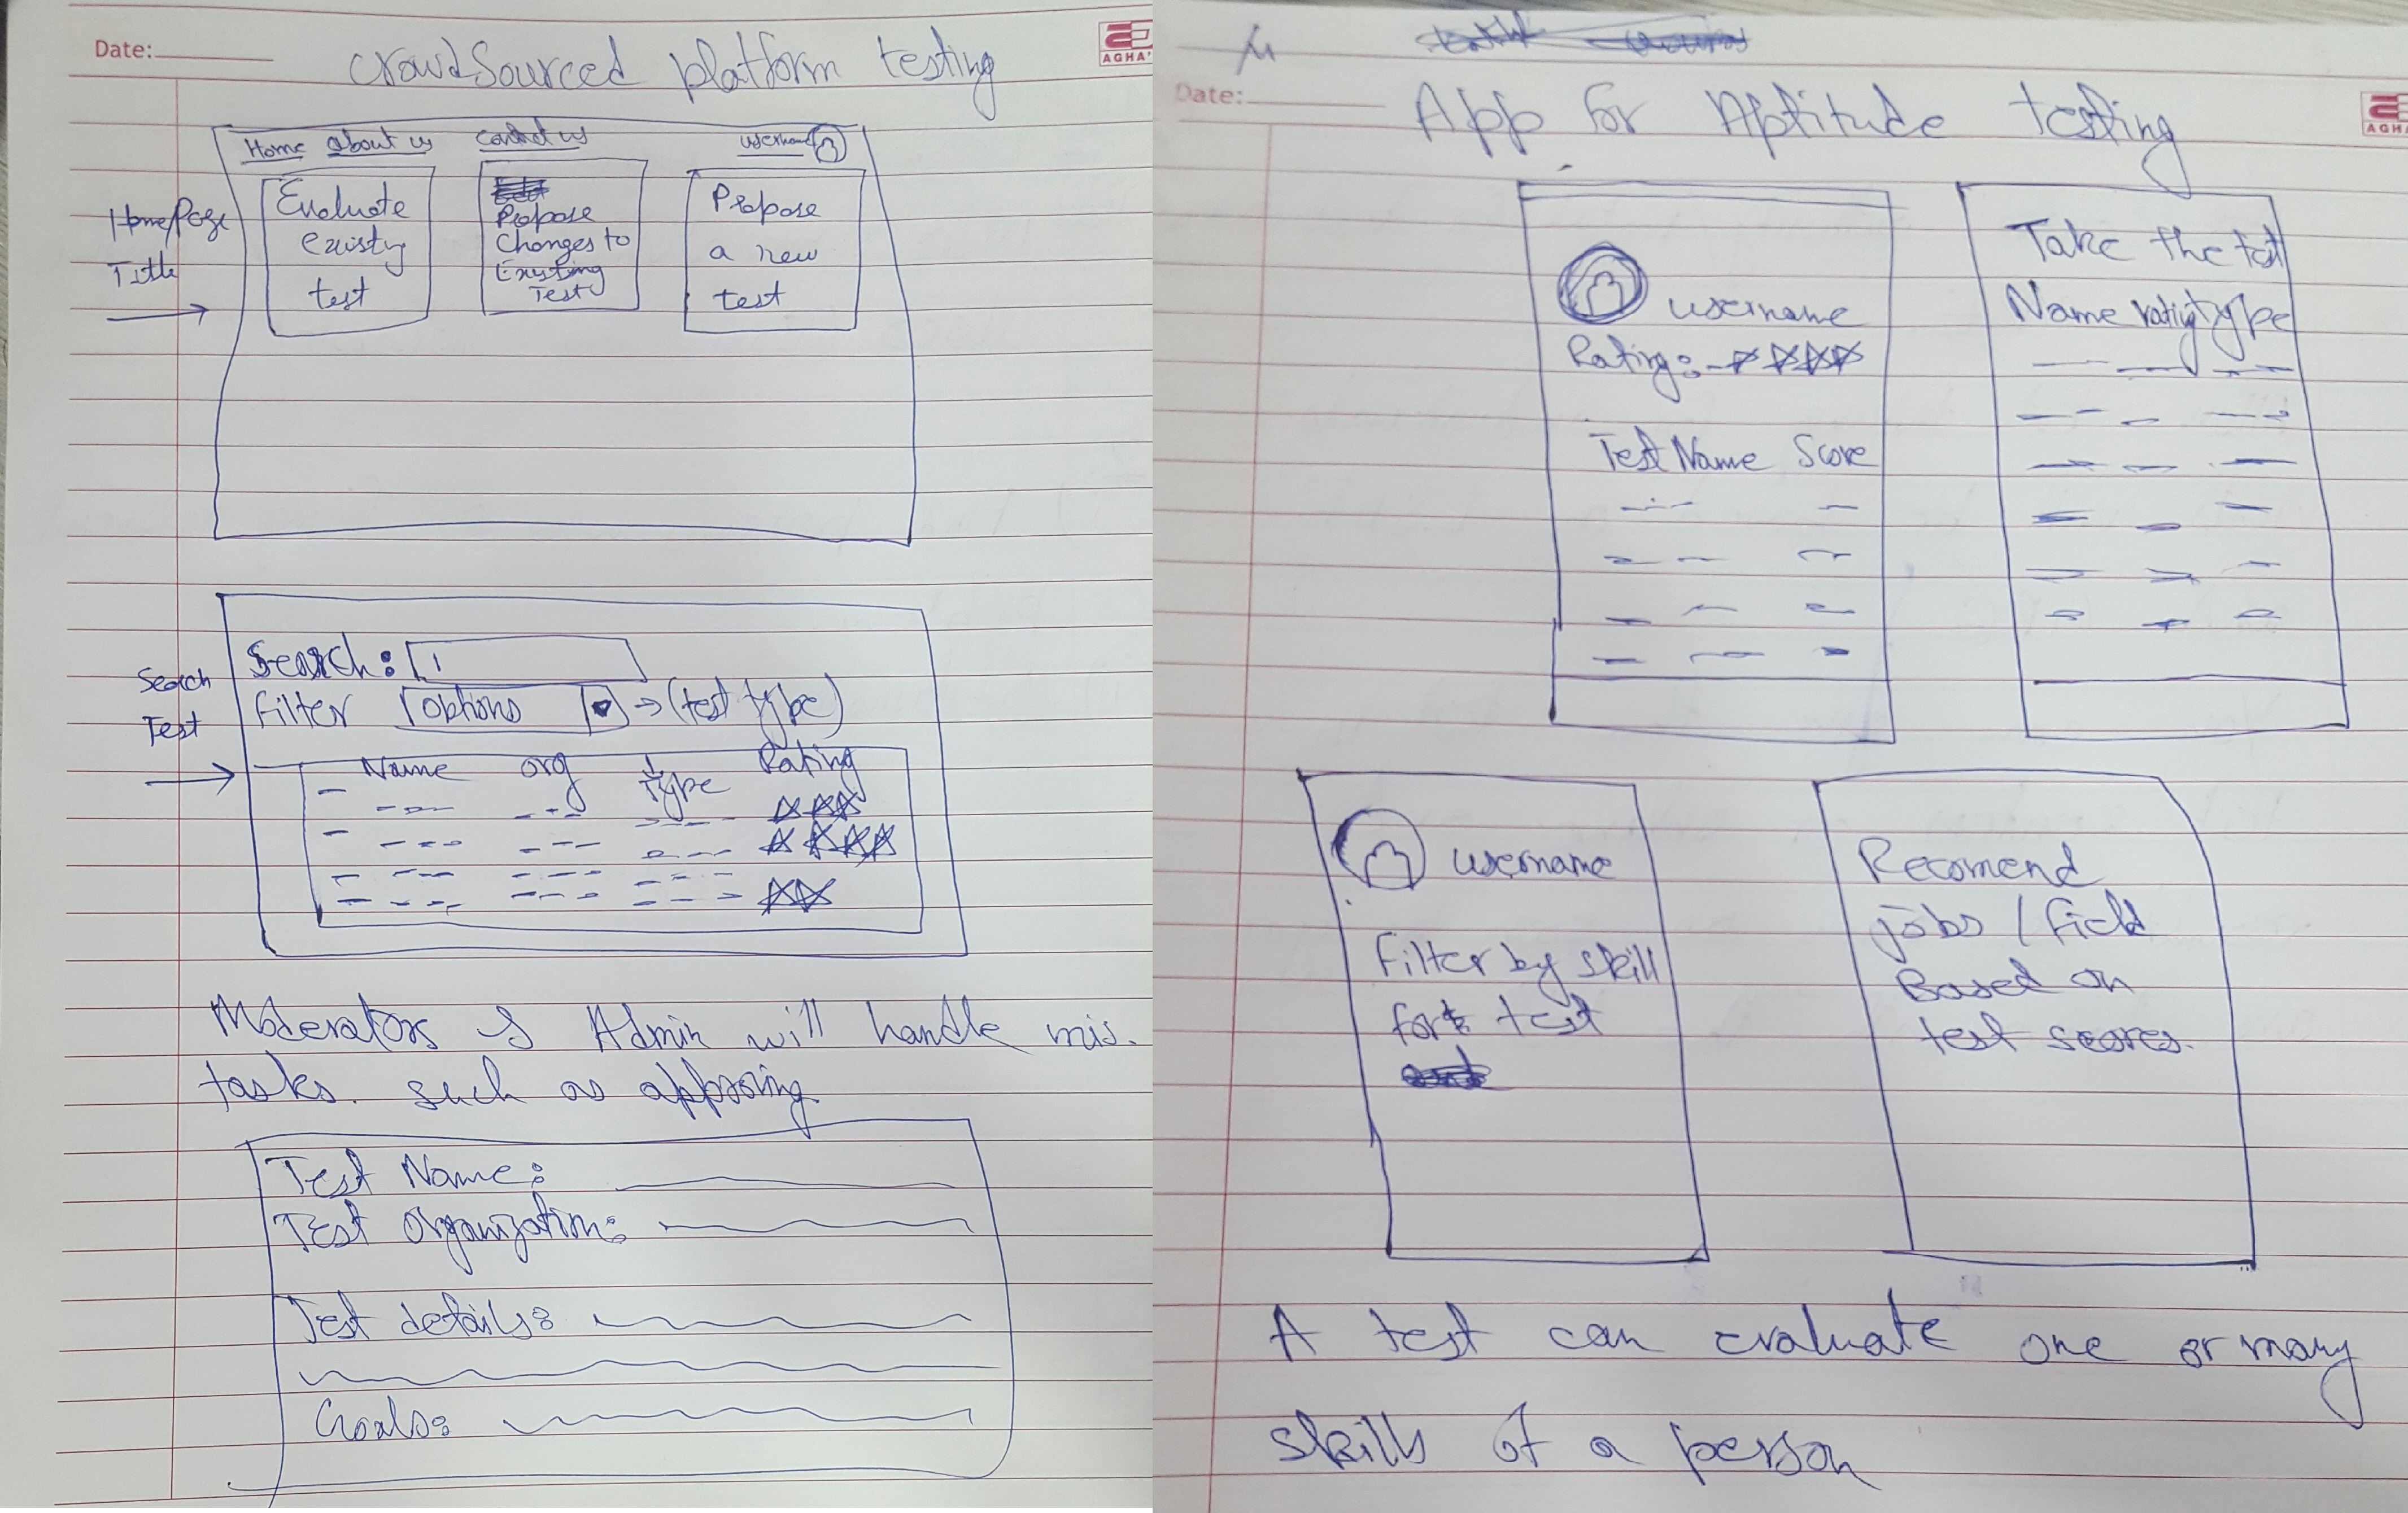 Date:
AGHA'
CrowdSourced platform testing
Home about us contact us username
HomePage
Title
Evaluate
existing
test
Propose
Changes to
Existing
Test
Propose
a new
test
Search
Test
Search:
Filter options → (test type)
Name org type Rating
Moderators & Admin will handle mis.
tasks. such as approving.
Test Name:
Test Organization:
Test details:
Goals:
Date:
AGHA
App for Aptitude testing
username
Rating:
Test Name Score
Take the test
Name rating type
username
Filter by skill
for test
Recomend
jobs / field
Based on
test scores.
A test can evaluate one or many
skills of a person